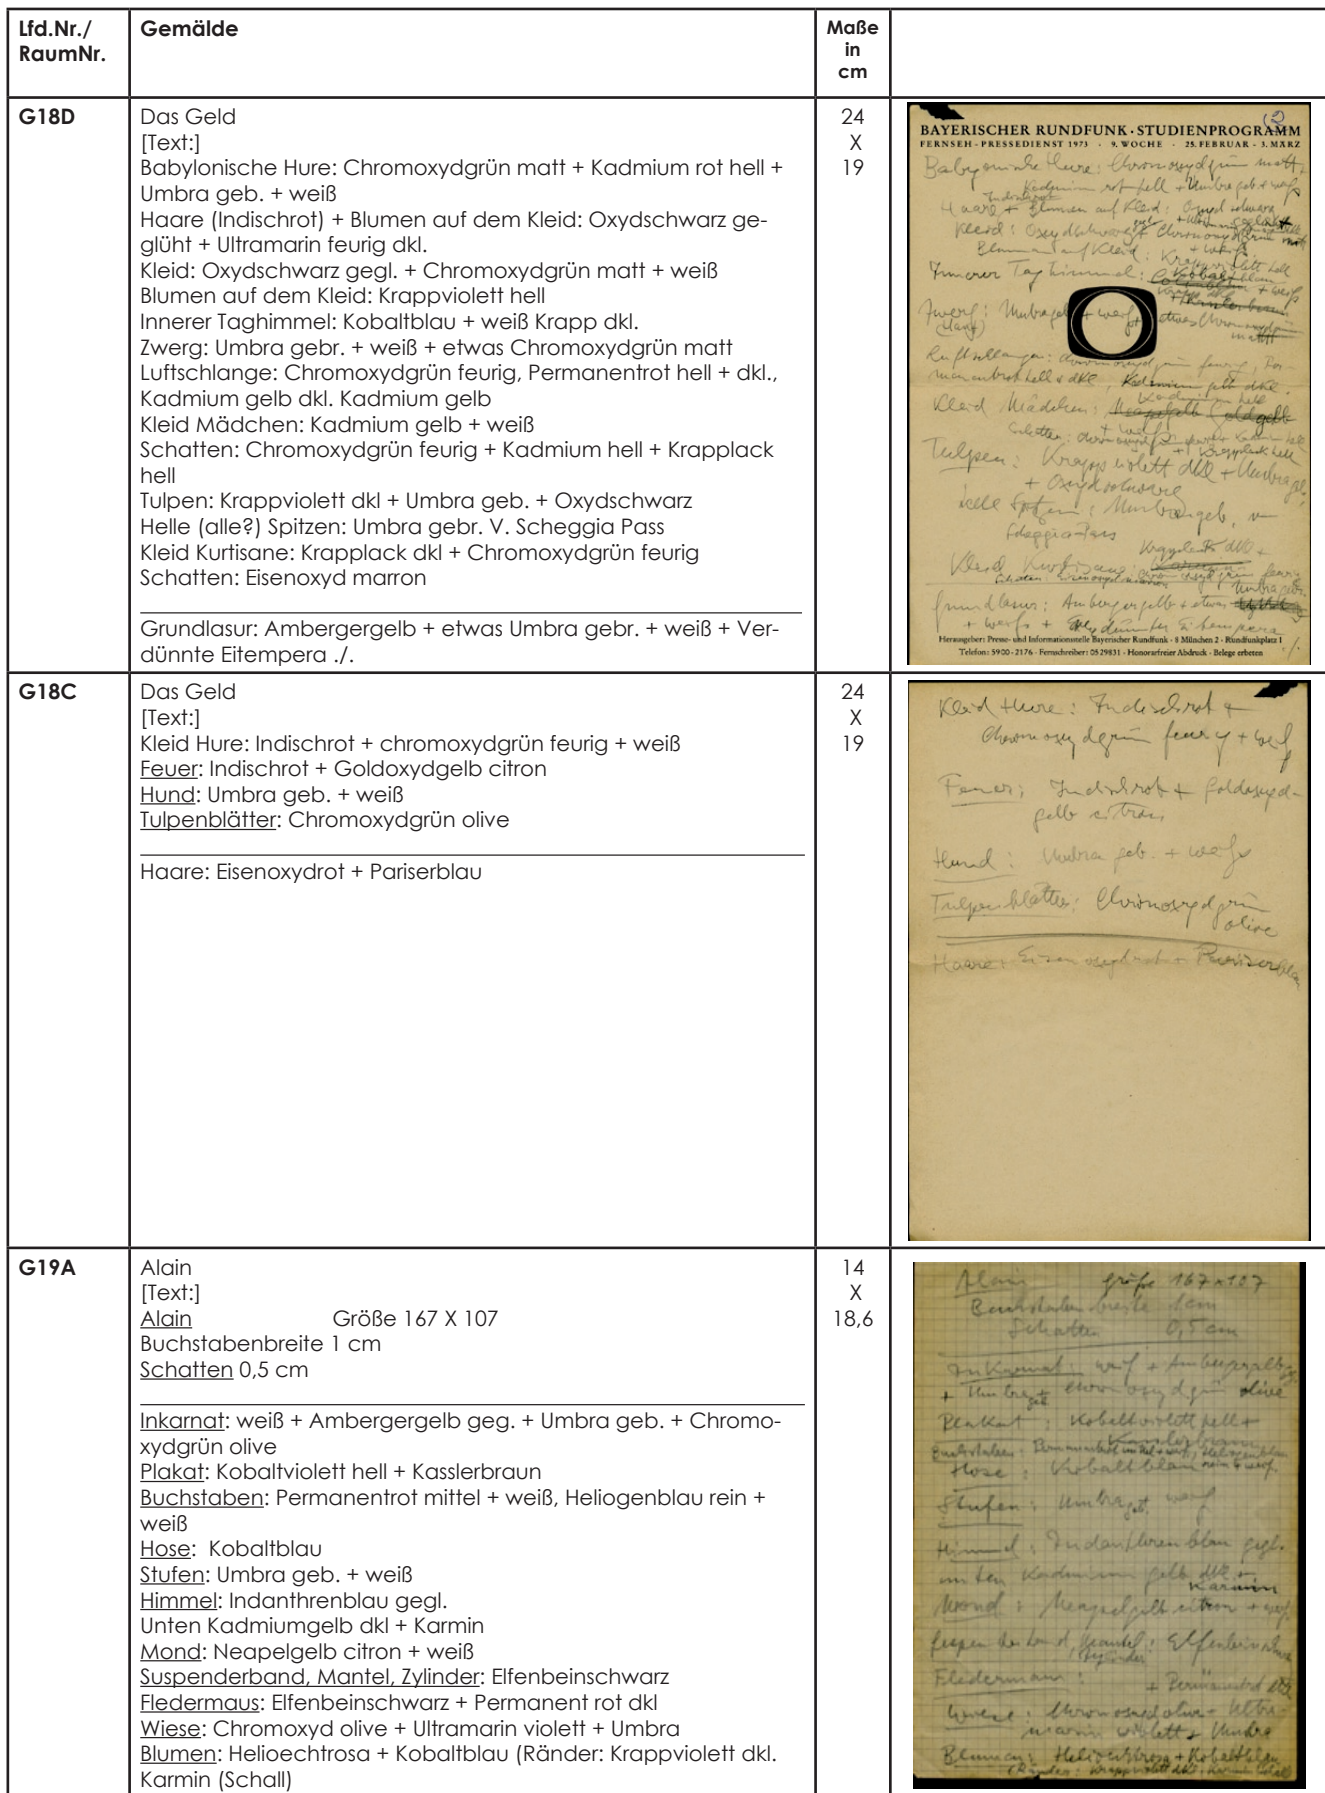 Lfd.Nr./
RaumNr.
Gemälde
Maße
in
cm
G18D
Das Geld
[Text:]
Babylonische Hure: Chromoxydgrün matt + Kadmium rot hell +
Umbra geb. + weiß
Haare (Indischrot) + Blumen auf dem Kleid: Oxydschwarz ge-
glüht + Ultramarin feurig dkl.
Kleid: Oxydschwarz gegl. + Chromoxydgrün matt + weiß
Blumen auf dem Kleid: Krappviolett hell
Innerer Taghimmel: Kobaltblau + weiß Krapp dkl.
Zwerg: Umbra gebr. + weiß + etwas Chromoxydgrün matt
Luftschlange: Chromoxydgrün feurig, Permanentrot hell + dkl.,
Kadmium gelb dkl. Kadmium gelb
Kleid Mädchen: Kadmium gelb + weiß
Schatten: Chromoxydgrün feurig + Kadmium hell + Krapplack
hell
Tulpen: Krappviolett dkl + Umbra geb. + Oxydschwarz
Helle (alle?) Spitzen: Umbra gebr. V. Scheggia Pass
Kleid Kurtisane: Krapplack dkl + Chromoxydgrün feurig
Schatten: Eisenoxyd marron
Grundlasur: Ambergergelb + etwas Umbra gebr. + weiß + Ver-
dünnte Eitempera ./.
24
X
19
BAYERISCHER RUNDFUNK · STUDIENPROGRAMM
FERNSEH - PRESSEDIENST 1973 · 9. WOCHE · 25. FEBRUAR - 3. MÄRZ
Babylonische Hure: Chromoxydgrün matt +
Kadmium rot hell + Umbra geb + weiß
Indischrot
Haare + Blumen auf Kleid: Oxydschwarz
Kleid: Oxydschwarz + Chromoxydgrün matt
Blumen auf Kleid: Krappviolett hell
+ weiß
Innerer Taghimmel: Kobaltblau
+ weiß
Krapp dkl
Zwerg: Umbrageb + weiß + etwas Chromoxydgrün
matt
Luftschlangen: Chromoxydgrün feurig, Per-
manentrot hell + dkl, Kadmium gelb dkl.
Kadmium hell
Kleid Mädchen: Neapelgelb Goldgelb
+ weiß
Schatten: Chromoxydgrün feurig + Kadmium hell
+ Krapplack hell
Tulpen: Krappviolett dkl + Umbra geb.
+ Oxydschwarz
helle Spitzen: Umbrageb. v
Scheggia Pass
Krapplack dkl +
Kleid Kurtisane: Chromoxydgrün feurig
Schatten: Eisenoxydmarron
Umbra gebr.
Grundlasur: Ambergergelb + etwas
+ weiß + verdünnte Eitempera
./.
Herausgeber: Presse- und Informationsstelle Bayerischer Rundfunk · 8 München 2 · Rundfunkplatz 1
Telefon: 5900 - 2176 · Fernschreiber: 0529831 · Honorarfreier Abdruck · Belege erbeten
G18C
Das Geld
[Text:]
Kleid Hure: Indischrot + chromoxydgrün feurig + weiß
Feuer: Indischrot + Goldoxydgelb citron
Hund: Umbra geb. + weiß
Tulpenblätter: Chromoxydgrün olive
Haare: Eisenoxydrot + Pariserblau
24
X
19
Kleid Hure: Indischrot +
Chromoxydgrün feurig + weiß
Feuer: Indischrot + Goldoxyd-
gelb citron
Hund: Umbra geb. + weiß
Tulpenblätter: Chromoxydgrün
olive
Haare: Eisenoxydrot + Pariserblau
G19A
Alain
[Text:]
Alain Größe 167 X 107
Buchstabenbreite 1 cm
Schatten 0,5 cm
Inkarnat: weiß + Ambergergelb geg. + Umbra geb. + Chromo-
xydgrün olive
Plakat: Kobaltviolett hell + Kasslerbraun
Buchstaben: Permanentrot mittel + weiß, Heliogenblau rein +
weiß
Hose: Kobaltblau
Stufen: Umbra geb. + weiß
Himmel: Indanthrenblau gegl.
Unten Kadmiumgelb dkl + Karmin
Mond: Neapelgelb citron + weiß
Suspenderband, Mantel, Zylinder: Elfenbeinschwarz
Fledermaus: Elfenbeinschwarz + Permanent rot dkl
Wiese: Chromoxyd olive + Ultramarin violett + Umbra
Blumen: Helioechtrosa + Kobaltblau (Ränder: Krappviolett dkl.
Karmin (Schall)
14
X
18,6
Alain größe 167 x 107
Buchstabenbreite 1cm
Schatten 0,5 cm
Inkarnat: weiß + Ambergergelb
+ Umbra geb + Chromoxydgrün olive
Plakat: Kobaltviolett hell +
Kasslerbraun
Buchstaben: Permanentrot mittel + weiß, Heliogenblau
rein + weiß
Hose: Kobaltblau
Stufen: Umbra geb. weiß
Himmel: Indanthrenblau gegl.
unten Kadmium gelb dkl +
Karmin
Mond: Neapelgelb citron + weiß
Mantel, Zylinder: Elfenbeinschwarz
Fledermaus: + Permanentrot dkl
Wiese: Chromoxydolive + Ultra-
marin violett + Umbra
Blumen: Helioechtrosa + Kobaltblau
(Ränder: Krappviolett dkl + Karmin Schall